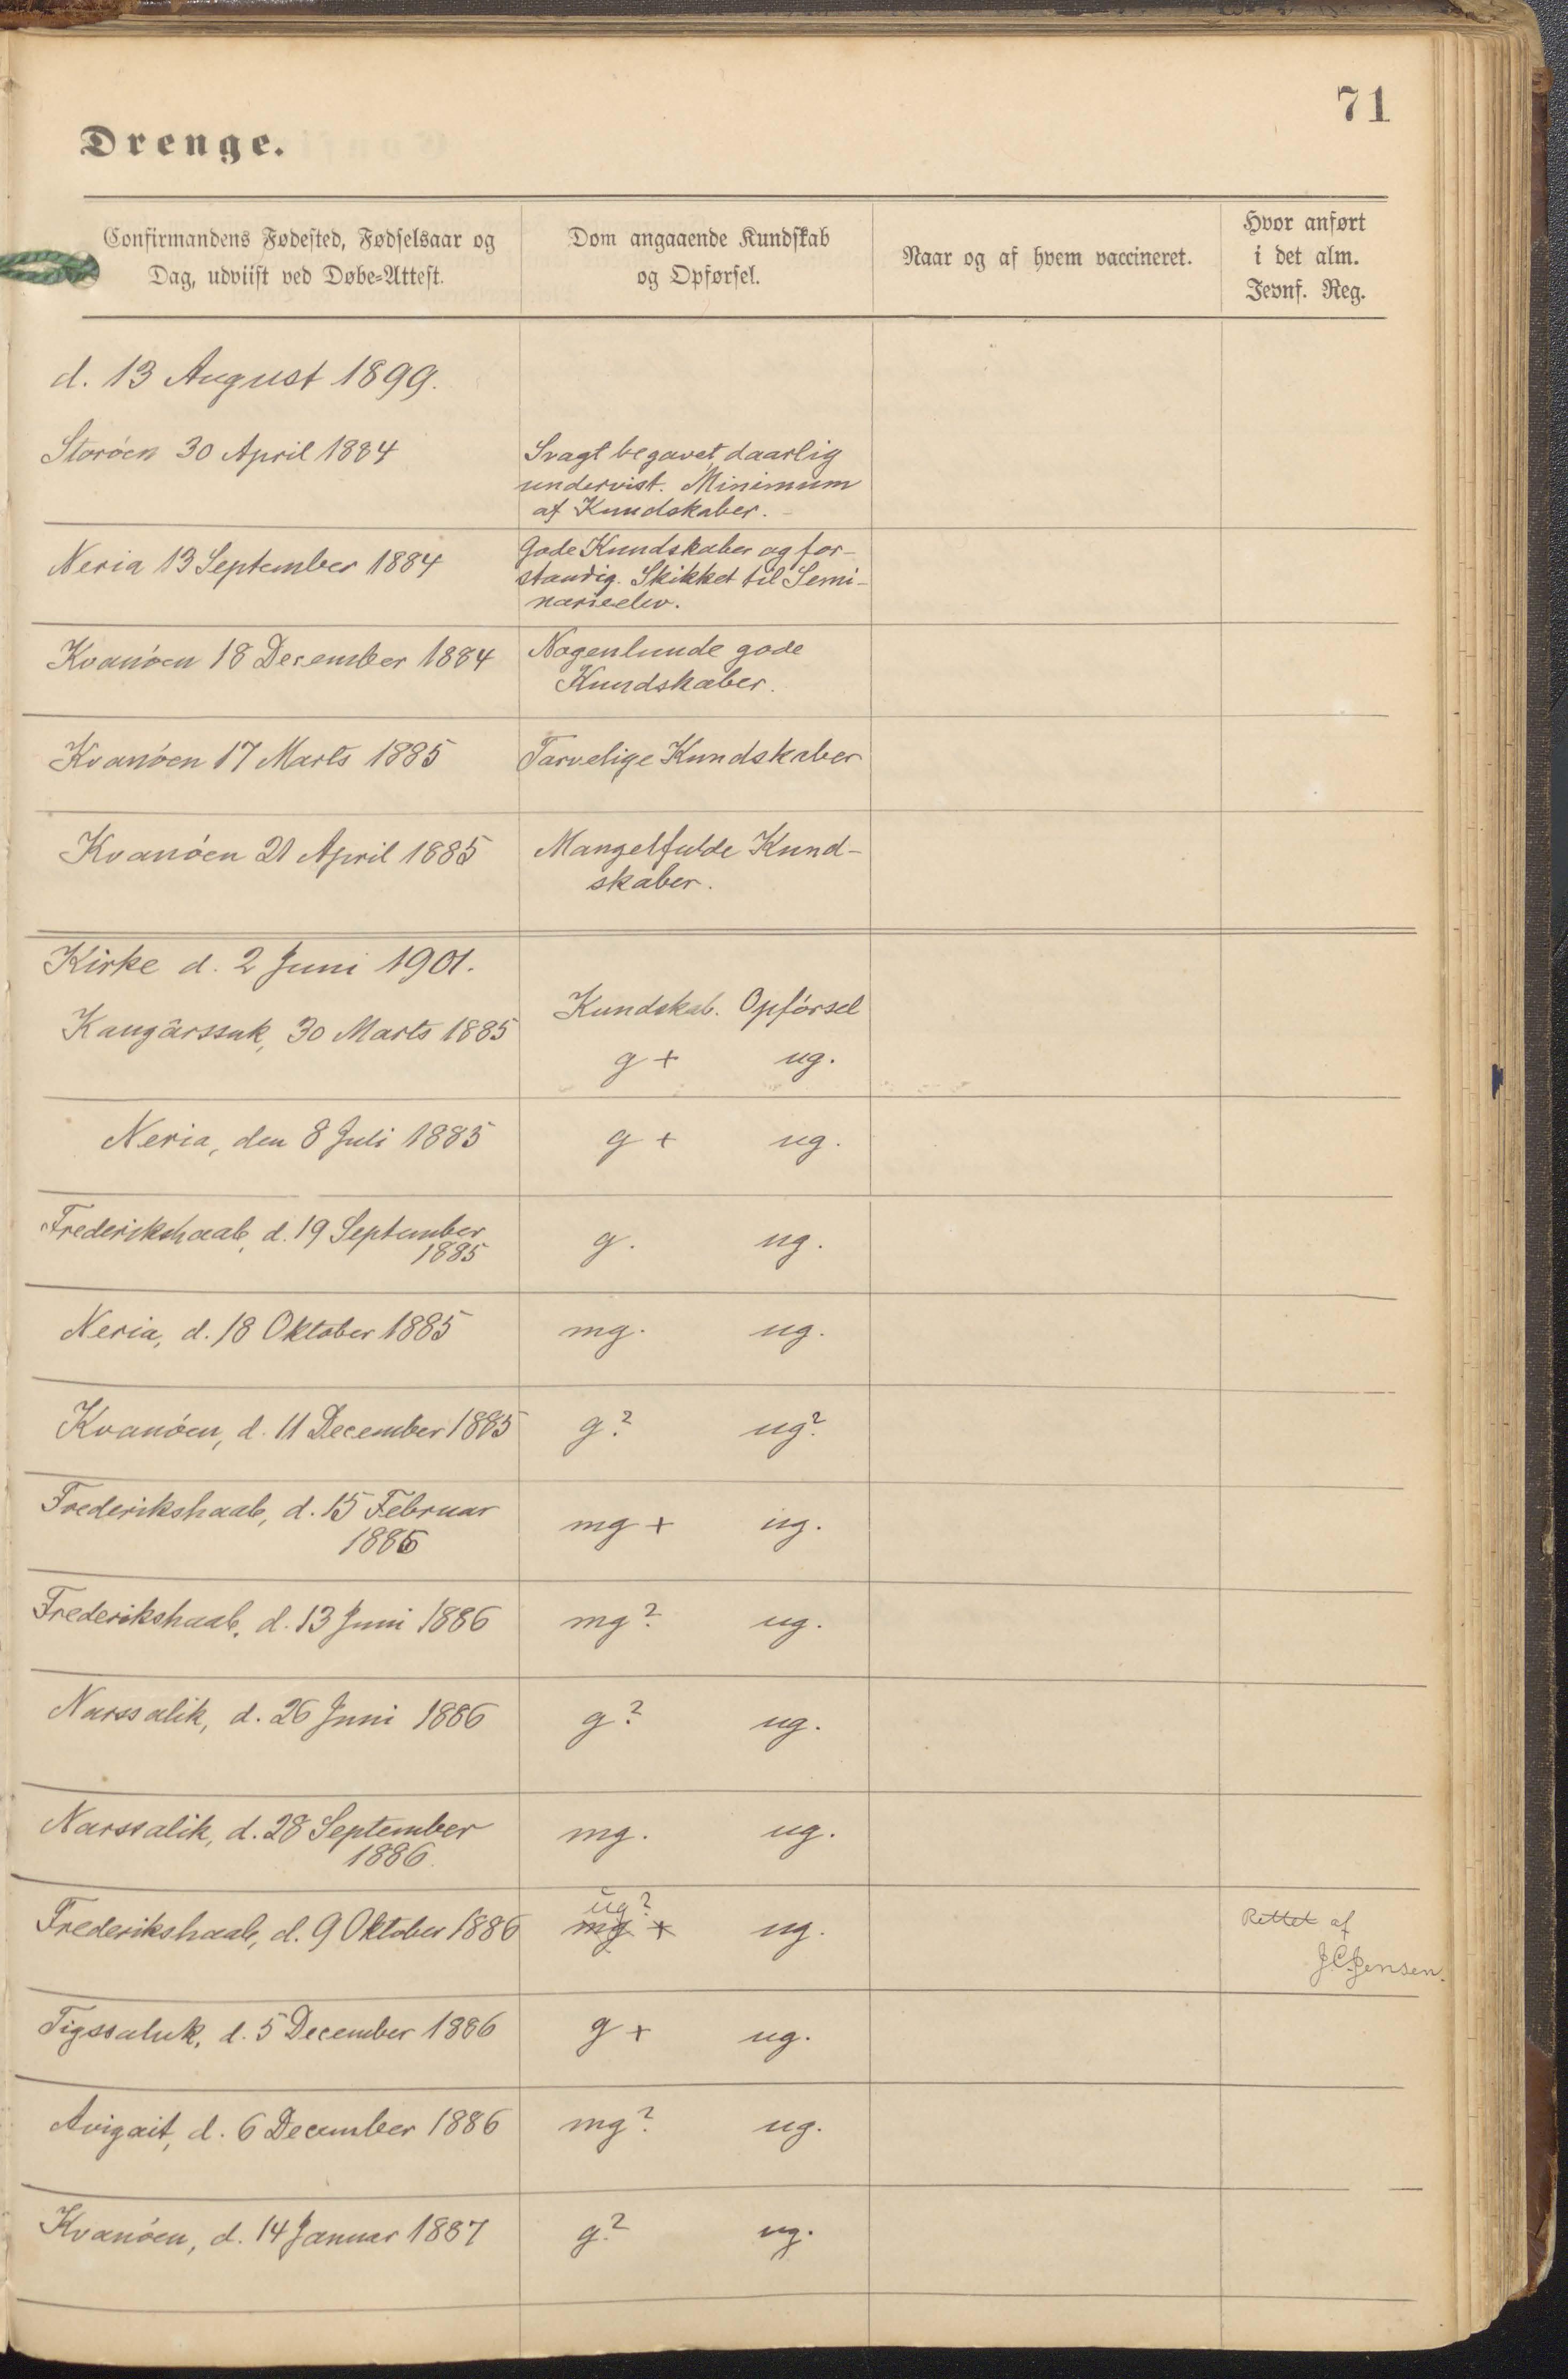 71
Drenge.
Confirmandens Fødested, Fødselsaar og
Dag, udviist ved Døbe-Attest.
Dom angaaende Kundskab
og Opførsel.
Naar og af hvem vaccineret.
Hvor anført
i det alm.
Jevnf. Reg.
d. 13 August 1899.
Storöen 30 April 1884
Svagt begavet, daarlig
undervist. Minimum
af Kundskaber.
Neria 13 September 1884
Gode Kundskaber og for-
standig. Skikket til Semi-
narieelev.
Kvanöen 18 December 1884
Nogenlunde gode
Kundskaber.
Kvanöen 17 Marts 1885
Tarvelige Kundskaber
Kvanöen 21 April 1885
Mangelfulde Kund-
skaber.
Kirke d. 2 Juni 1901.
Kundskab. Opförsel
Kangârssuk, 30 Marts 1885
g + ug.
Neria, den 8 Juli 1885
g + ug.
Frederikshaab, d. 19 September
1885
g. ug.
Neria, d. 18 Oktober 1885
mg. ug.
Kvanöen, d. 11 December 1885
g? ug?
Frederikshaab, d. 15 Februar
1886
mg + ug.
Frederikshaab, d. 13 Juni 1886
mg? ug.
Narssalik, d. 26 Juni 1886
g? ug.
Narssalik, d. 28 September
1886.
mg. ug.
ug?
Frederikshaab, d. 9 Oktober 1886
mg + ug.
Rettet af
J.C.Jensen.
Tigssaluk, d. 5 December 1886
g + ug.
Avigait, d. 6 December 1886
mg? ug.
Kvanöen, d. 14 Januar 1887
g? ug.